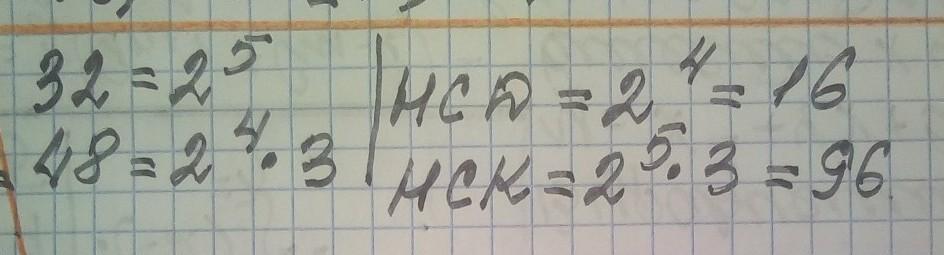 32 = 2⁵
48 = 2⁴ · 3
НСД = 2⁴ = 16
НСК = 2⁵ · 3 = 96